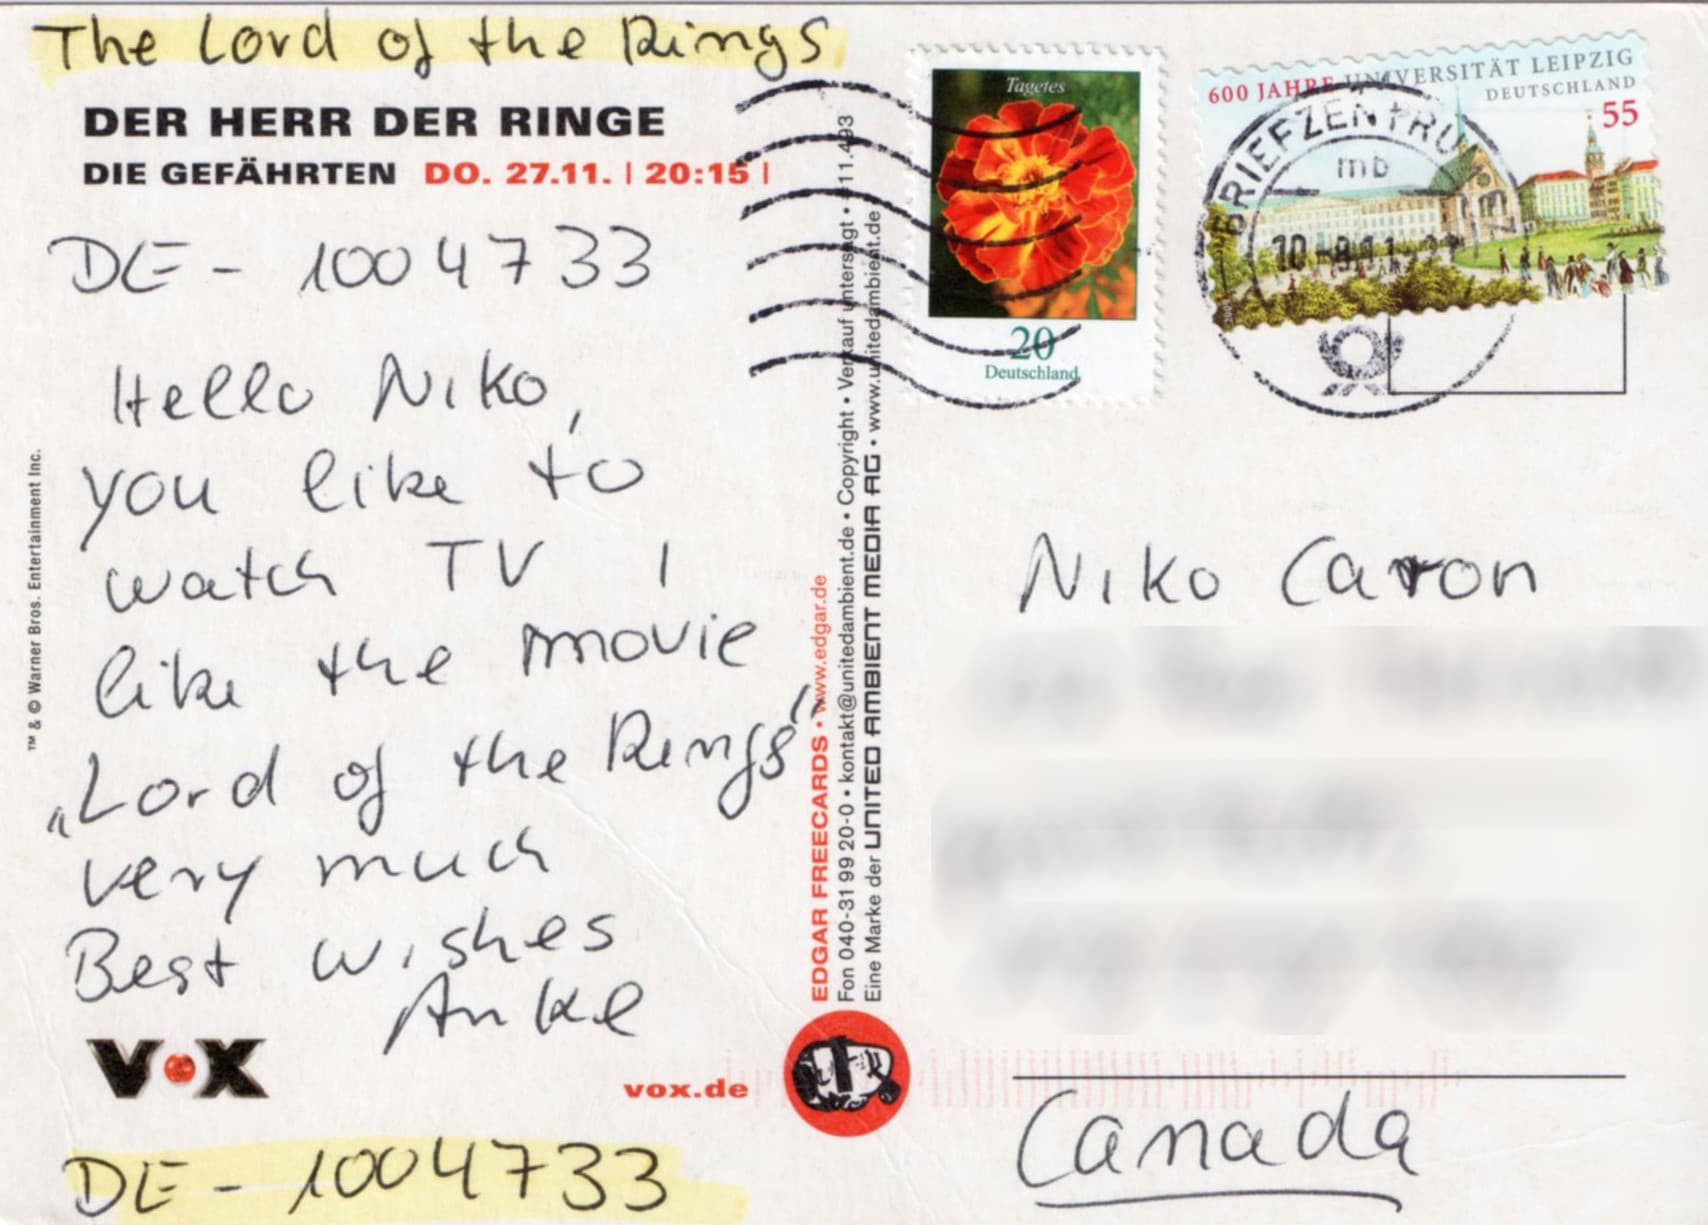 The Lord of the Rings
DER HERR DER RINGE
DIE GEFÄHRTEN DO. 27.11. | 20:15 |
DE - 1004733
Hello Niko,
you like to
watch TV I
like the movie
„Lord of the Rings"
very much
Best wishes
Anke
VOX
vox.de
DE - 1004733
TM & © Warner Bros. Entertainment Inc.
EDGAR FREECARDS • www.edgar.de
Fon 040-31 99 20-0 • kontakt@unitedambient.de • Copyright • Verkauf untersagt • #11.493
Eine Marke der UNITED AMBIENT MEDIA AG • www.unitedambient.de
Tagetes
20
Deutschland
600 JAHRE UNIVERSITÄT LEIPZIG
DEUTSCHLAND
55
BRIEFZENTRUM
mb
Niko Caron
Canada